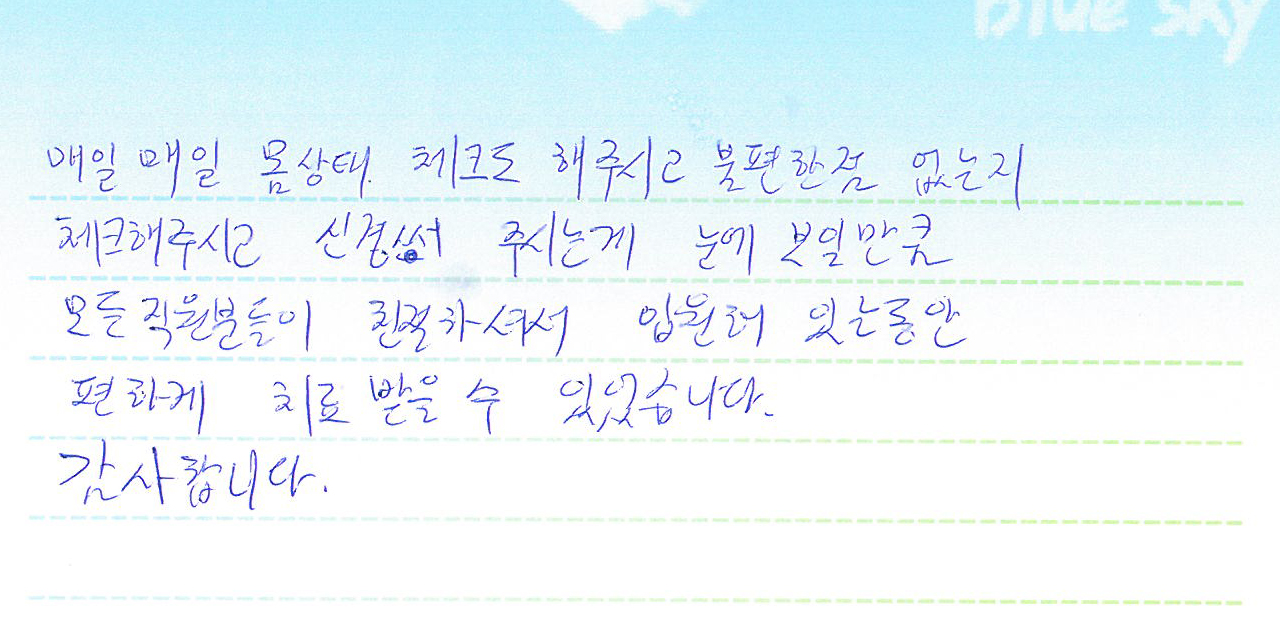 Blue sky
매일매일 몸상태 체크도 해주시고 불편한점 없는지
체크해주시고 신경써 주시는게 눈에 보일만큼
모든직원분들이 친절하셔서 입원해 있는동안
편하게 치료 받을 수 있었습니다.
감사합니다.